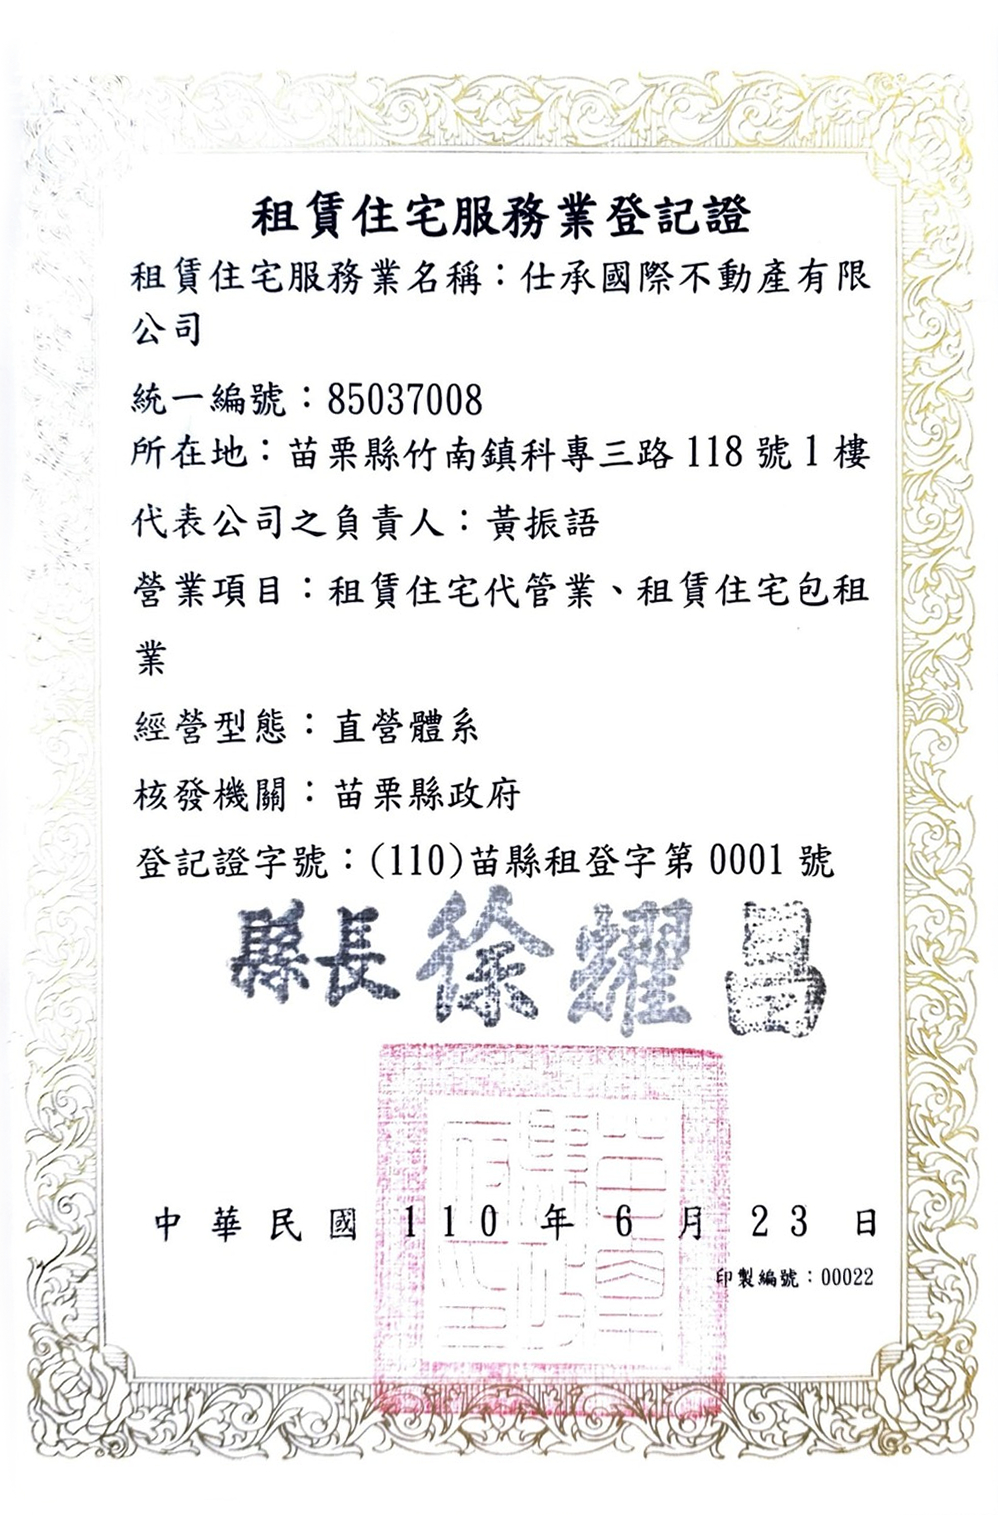 租賃住宅服務業登記證
租賃住宅服務業名稱：仕承國際不動產有限
公司
統一編號：85037008
所在地：苗栗縣竹南鎮科專三路118號1樓
代表公司之負責人：黃振語
營業項目：租賃住宅代管業、租賃住宅包租
業
經營型態：直營體系
核發機關：苗栗縣政府
登記證字號：(110)苗縣租登字第0001號
縣長 徐耀昌
中華民國110年6月23日
印製編號：00022